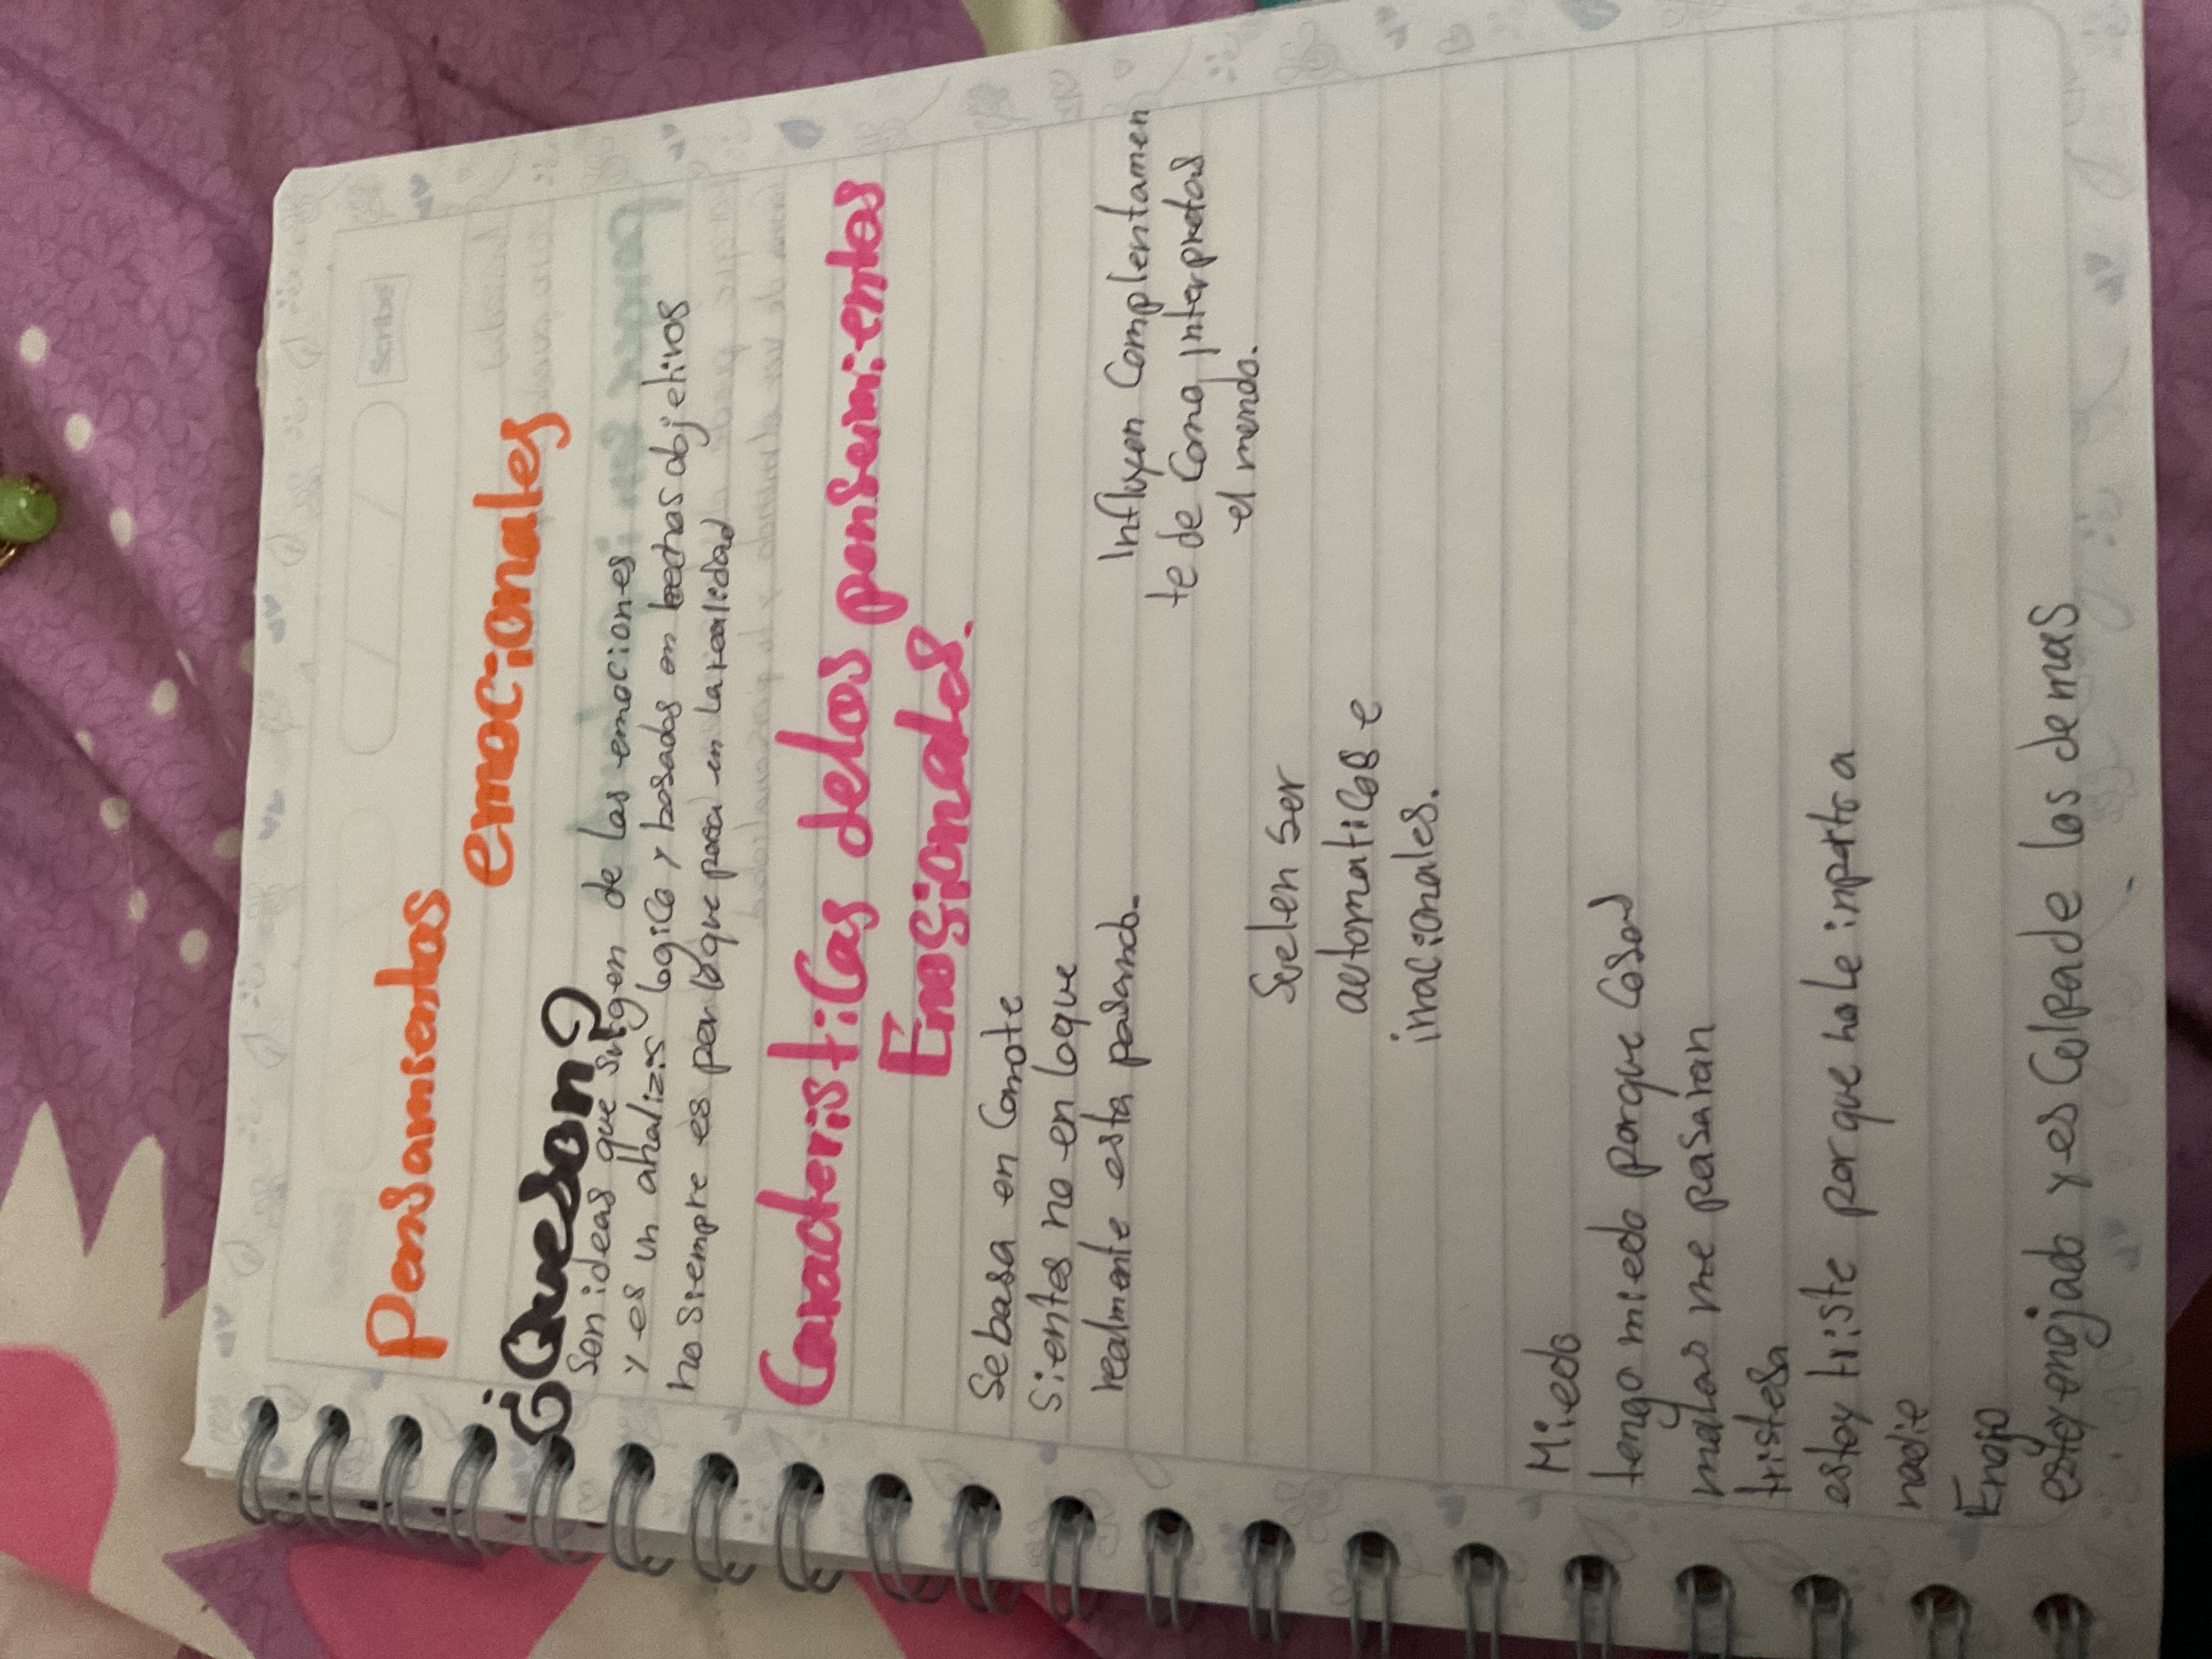 Scribe
Pensamientos
emocionales
¿Queson?
Son ideas que surgen de las emociones
y es un ahalizis logico y basados en hechos objetivos
no siempre es por lo que pasa en la realidad
Caracteristicas delos pensamientos
Emosionales.
Sebasa en Comote
Sientes no en loque
realmente esta pasando.
Influyen Complentamen
te de Como Interpretas
el mundo.
Suelen ser
automaticos e
irracionales.
Miedo
tengo miedo porque Cosas
malas me pasaran
tristesa
estoy triste por que no le inporto a
nadie
Enojo
estoy enojado y es Culpade los demas